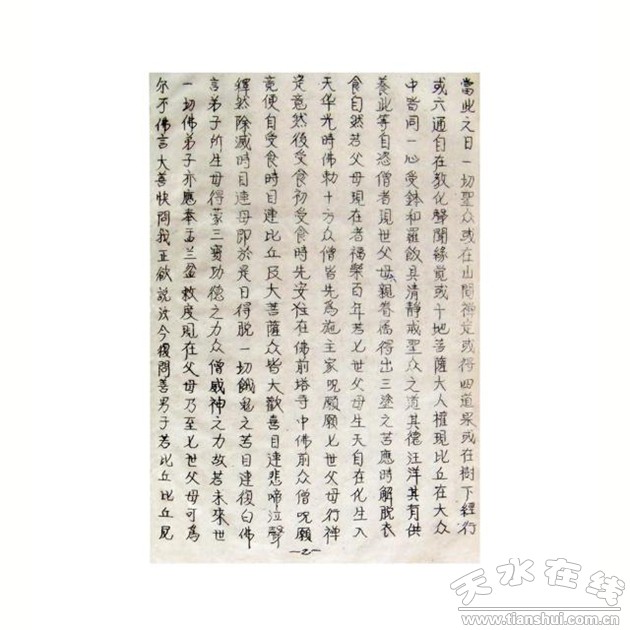 當此之日一切聖众或在山間禅定或得四道果或在樹下經行
或六通自在教化聲聞緣覚或十地菩薩大人權現比丘在大众
中皆同一心受鉢和羅飯具清静戒聖众之道其德汪洋其有供
養此等自恣僧者現世父母親眷属得出三塗之苦應時解脱衣
食自然若父母現在者福樂百年若七世父母生天自在化生入
天华光時佛勅十方众僧皆先爲施主家咒願願七世父母行禅
定意然後受食初受食時先安住在佛前塔寺中佛前众僧咒願
竟便自受食時目連比丘及大菩薩众皆大歡喜目連悲啼泣聲
釋然除滅時目連母即於是日得脱一切餓鬼之苦目連復白佛
言弟子所生母得蒙三寶功德之力众僧威神之力故若未來世
一切佛弟子亦應奉盂兰盆救度現在父母乃至七世父母可爲
尔不佛言大善快問我正欲説汝今復問善男子若比丘比丘尼
—2—
天水在线
www.tianshui.com.cn